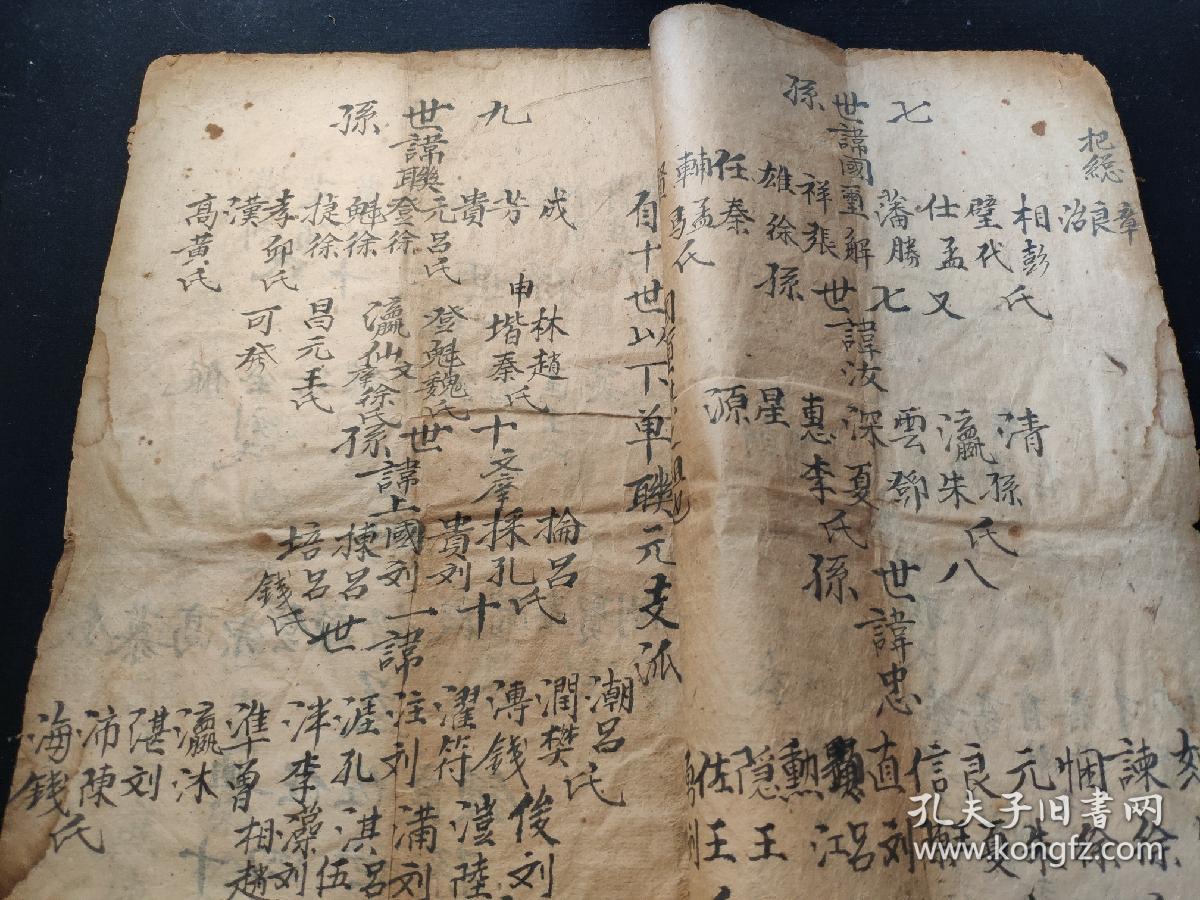 把總
章
良
治
相彭氏
璧代
仕孟又
藩勝七
七
世諱國璽解
孫
祥張
雄徐
任秦
輔孟
馬氏
清孫氏八
瀛朱
雲鄧
世諱汝深夏
孫
惠李氏
星
源
世諱忠
孫
諫徐
悃徐
元朱
良夏
信謝
直刘
顯呂
勳江
隐王
佐王
自十世以下单联元支派
九
世諱聯登徐
孫
成
芳
貴
元呂氏
魁徐
捷徐
孝邱氏
漢
高黃氏
林趙氏
申
堦秦
登魁魏氏
瀛仙
昌元王氏
可發
十
世諱上國刘
孫
掄呂氏
採孔
貴刘
棟呂
培呂
錢氏
十一
世諱
潮呂氏
潤樊
溥錢
濯符
注刘
涯孔
泮李
準曾
瀛沐
湛刘
沛陳
海錢氏
俊刘
漄陸
溥刘
淇呂
伍
藻刘
相趙
孔夫子旧书网
www.kongfz.com